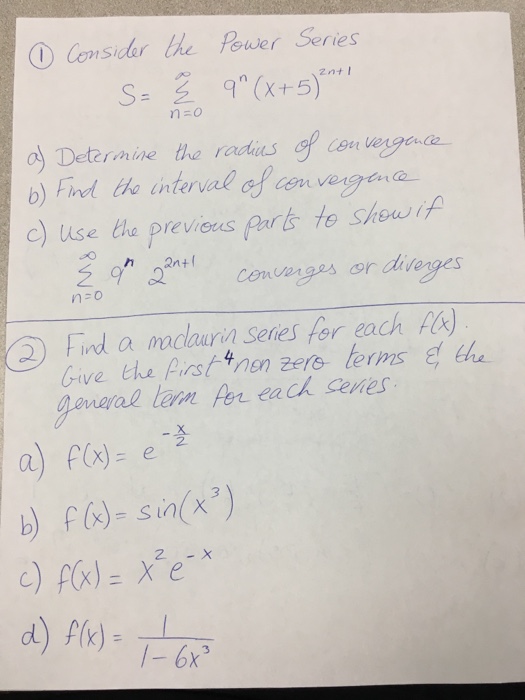 ① Consider the Power Series
S = ∞ Σ n=0 9ⁿ (x+5)²ⁿ⁺¹
a) Determine the radius of convergence
b) Find the interval of convergence
c) Use the previous parts to show if
∞ Σ n=0 9ⁿ 2²ⁿ⁺¹ converges or diverges
② Find a maclaurin series for each f(x).
Give the first 4 non zero terms & the
general term for each series.
a) f(x) = e^(-x/2)
b) f(x) = sin(x³)
c) f(x) = x² e⁻ˣ
d) f(x) = 1/(1-6x³)